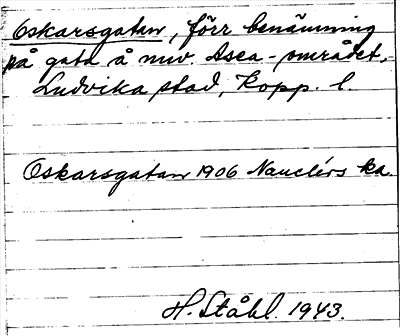 Oskarsgatan, förr benämning
på gata å nuv. Asea-området,
Ludvika stad, Kopp. l.
Oskarsgatan 1906 Nauclérs ka.
H. Ståhl. 1943.